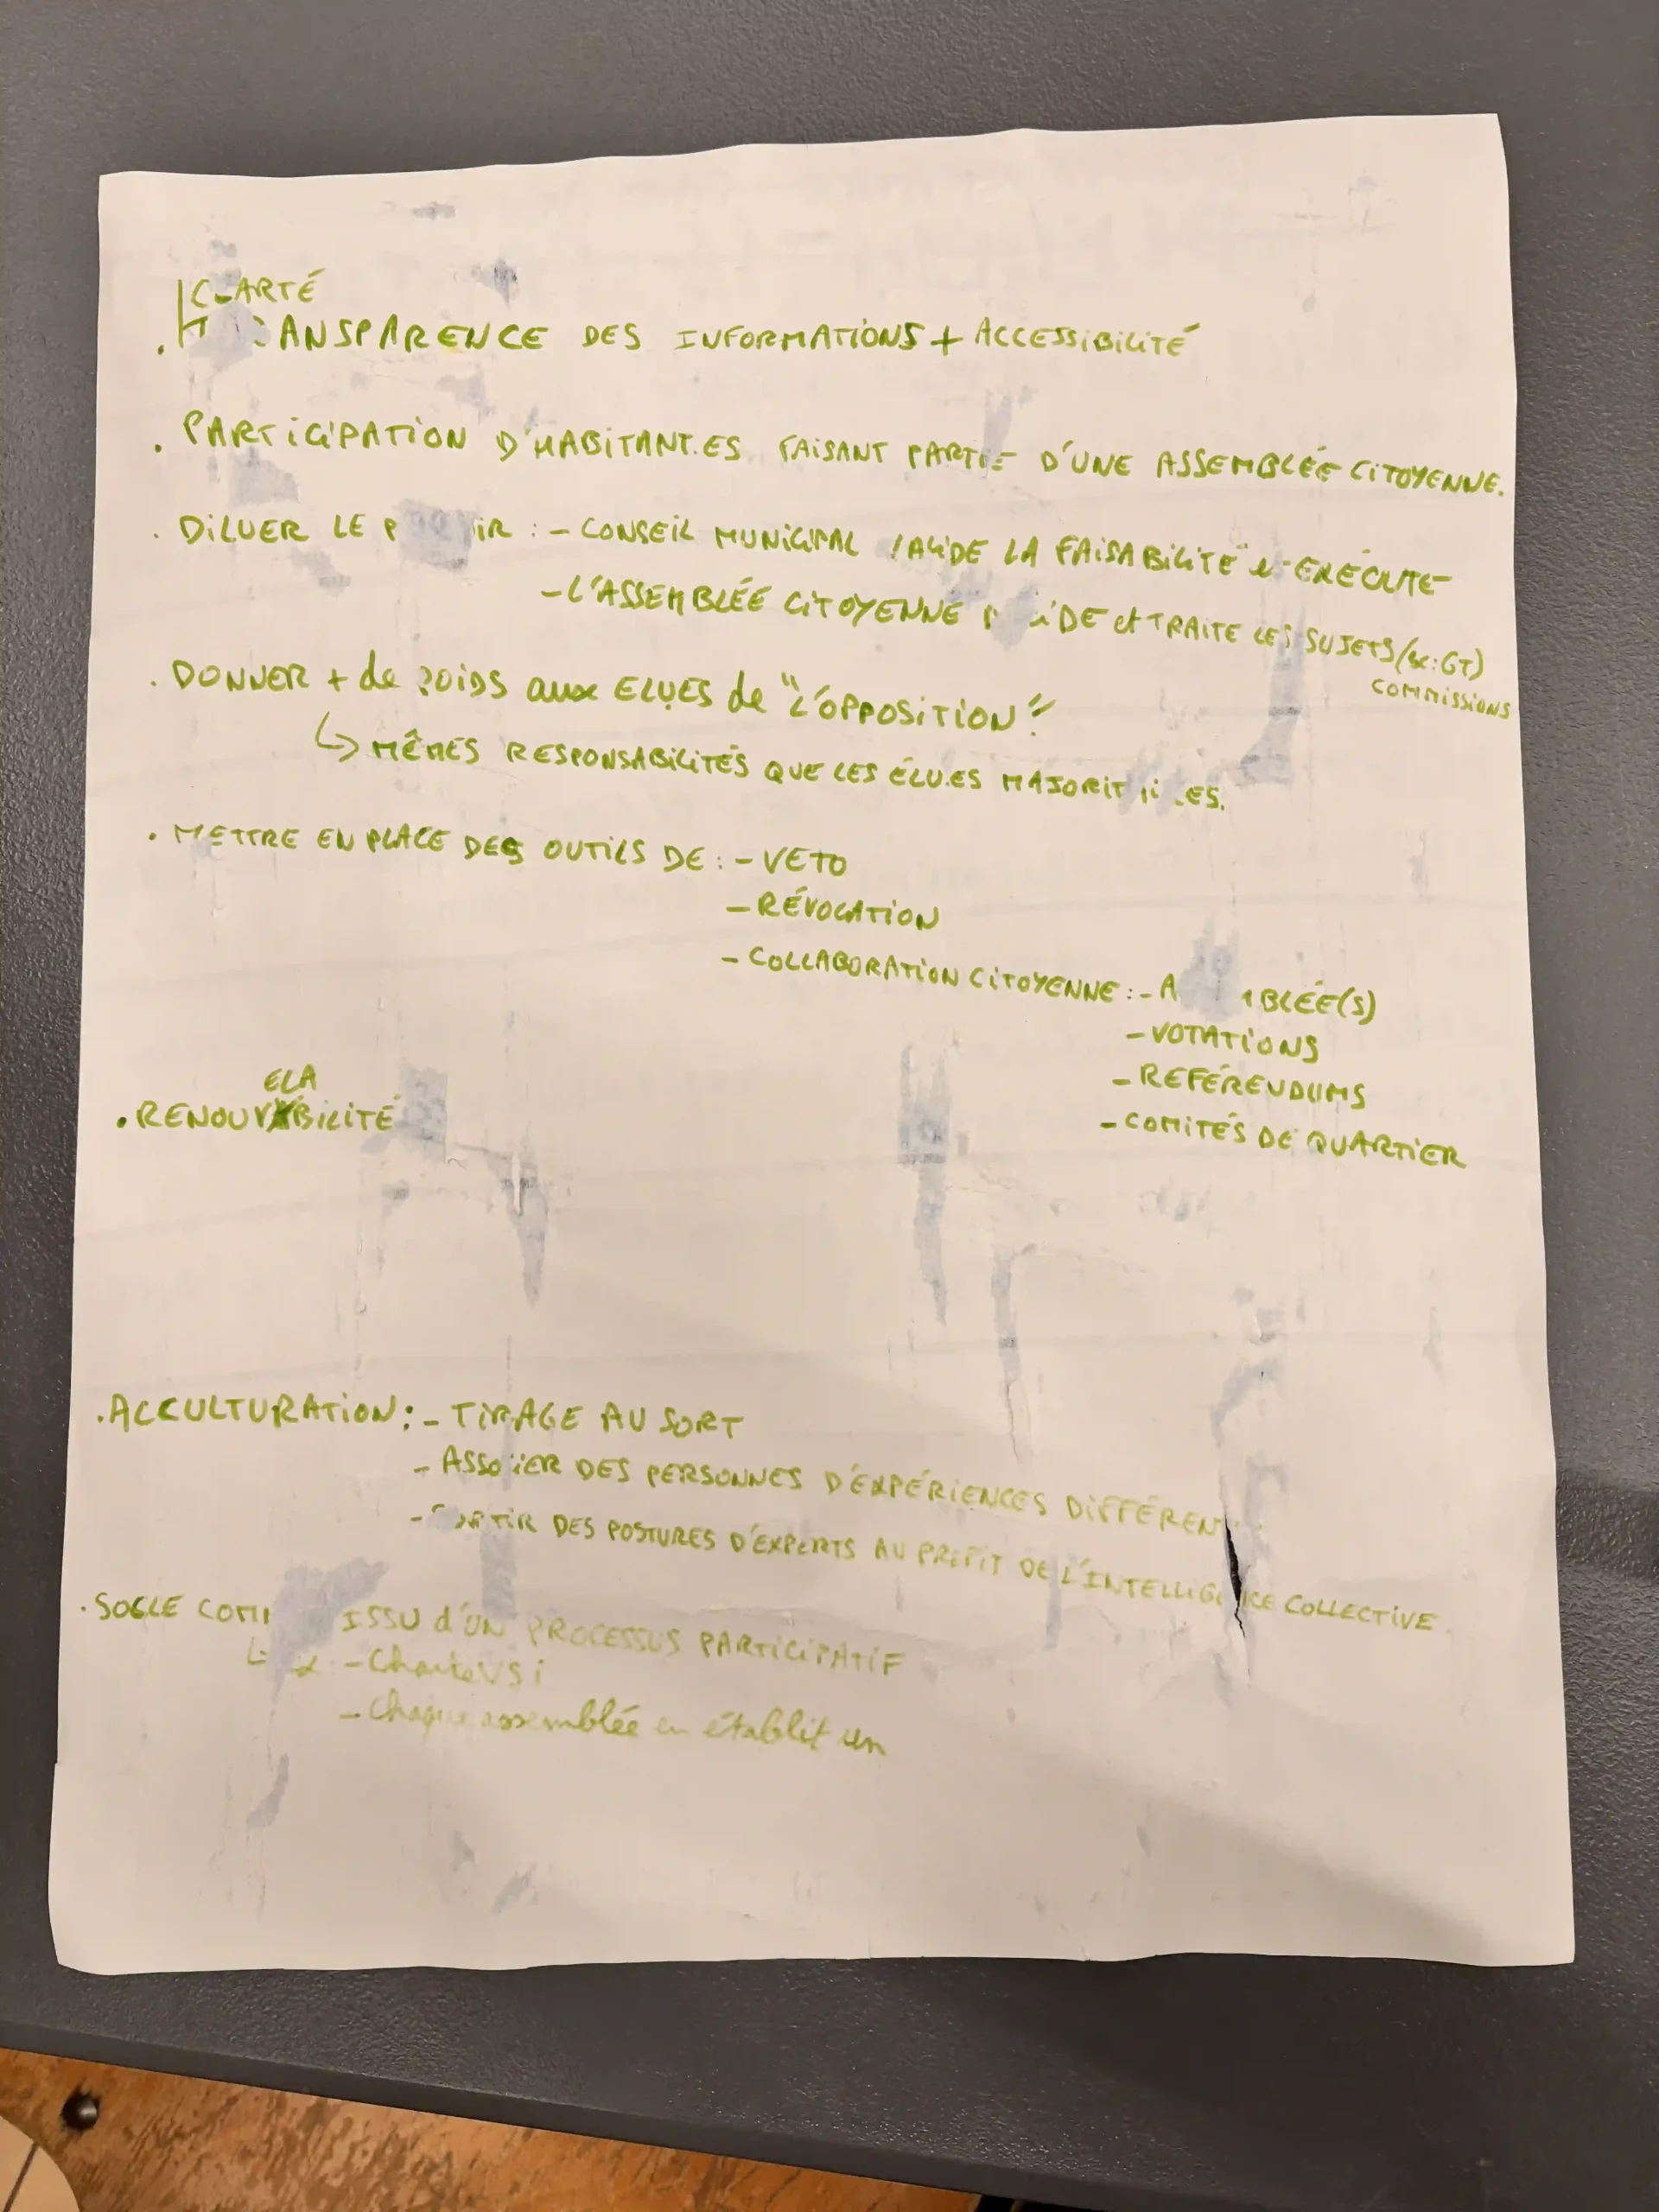 CLARTÉ
. TRANSPARENCE DES INFORMATIONS + ACCESSIBILITÉ
. PARTICIPATION D'HABITANT.ES FAISANT PARTIE D'UNE ASSEMBLÉE CITOYENNE.
. DILUER LE POUVOIR : - CONSEIL MUNICIPAL VALIDE LA FAISABILITÉ et EXÉCUTE
- L'ASSEMBLÉE CITOYENNE DÉCIDE et TRAITE LES SUJETS/(ex: GT)
COMMISSIONS
. DONNER + de POIDS aux ELUES de "L'OPPOSITION"
↳ MÊMES RESPONSABILITÉS QUE LES ÉLU.ES MAJORITAIRES.
. METTRE EN PLACE DES OUTILS DE : - VETO
- RÉVOCATION
- COLLABORATION CITOYENNE : - ASSEMBLÉE(S)
- VOTATIONS
- REFÉRENDUMS
- COMITÉS DE QUARTIER
ELA
. RENOUVBILITÉ
. ACCULTURATION : - TIRAGE AU SORT
- ASSOCIER DES PERSONNES D'EXPÉRIENCES DIFFÉREN
- SORTIR DES POSTURES D'EXPERTS AU PROFIT DE L'INTELLIGENCE COLLECTIVE.
. SOCLE COMMUN ISSU d'UN PROCESSUS PARTICIPATIF
↳ - Charte VSi
- Chaque assemblée en établit un